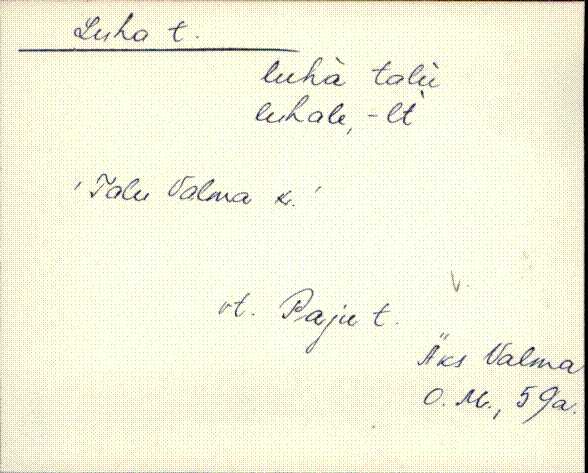 Luha t.
luhà talù
luhale, -lt
'Talu Valma k.'
V.
vt. Paju t.
Äks Valma
O. M., 59a.